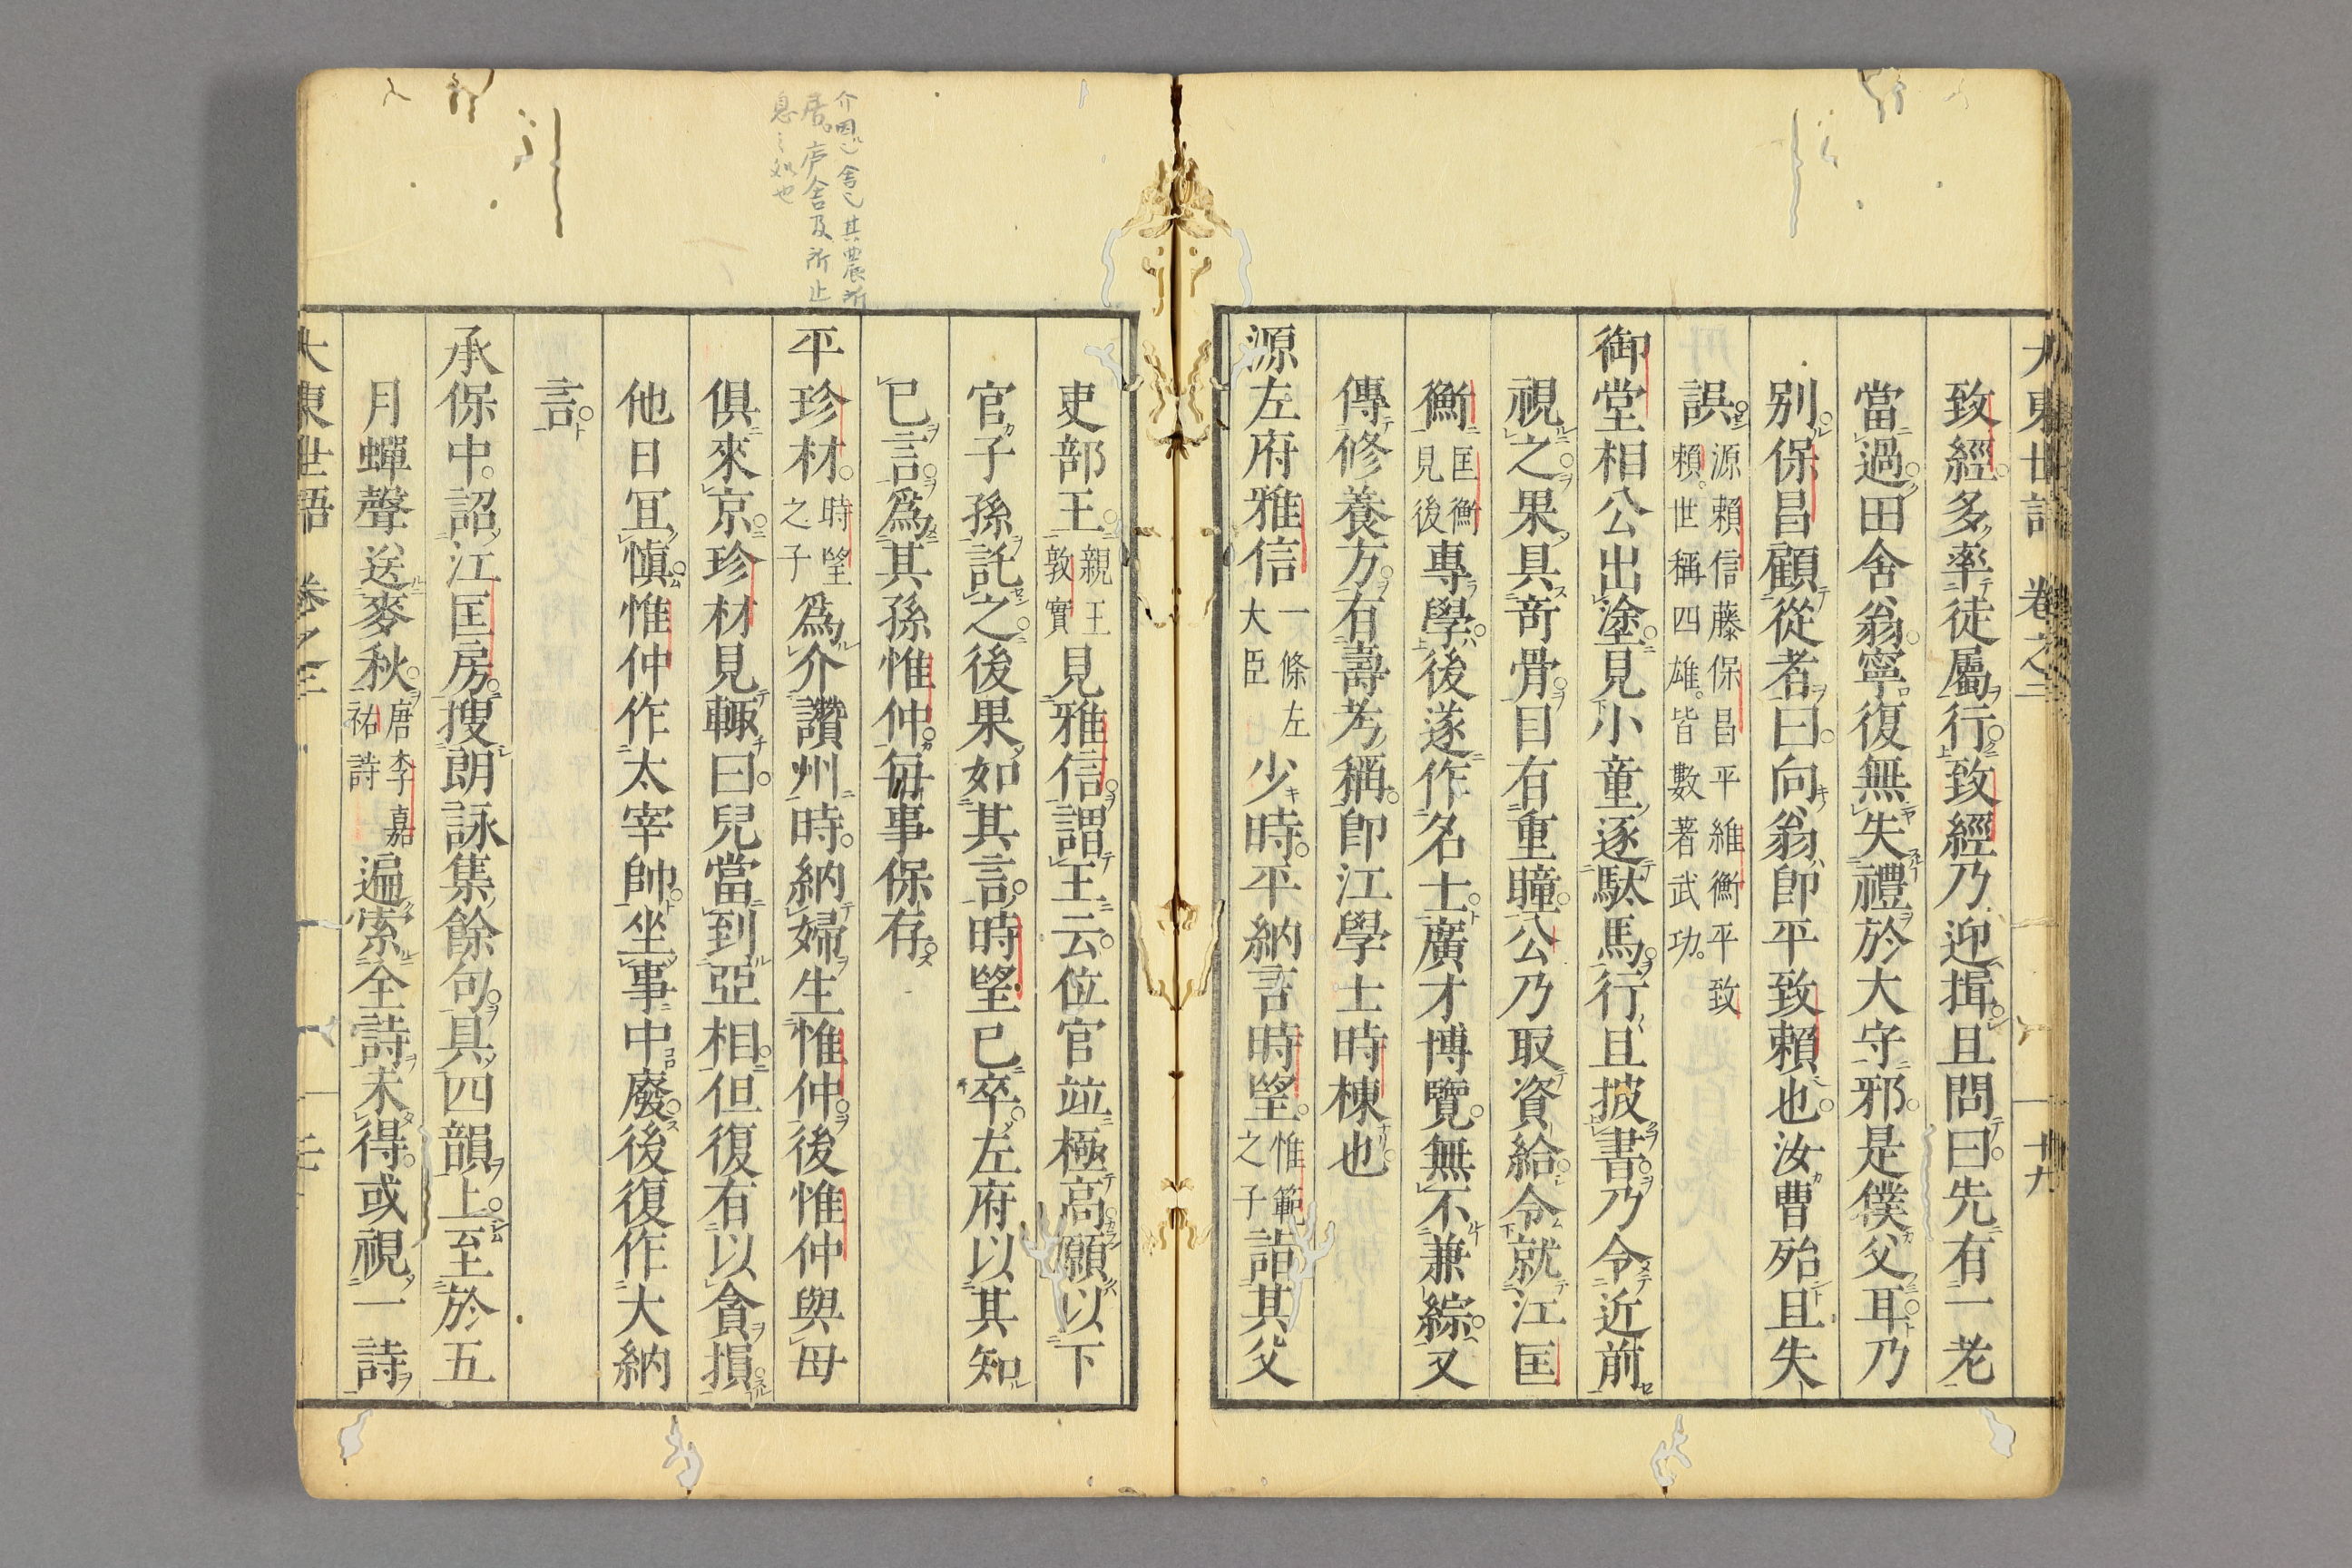 大東世語 卷之三 十九
致經多率徒屬行致經乃迎揖且問曰先有一老
當過田舍翁寧復無失禮於大守邪是僕父耳乃
別保昌顧從者曰向翁卽平致賴也汝曹殆且失
誤源賴信藤保昌平維衡平致賴世稱四雄皆數著武功
御堂相公出塗見小童逐馱馬行且披書乃令近前
視之果具奇骨目有重瞳公乃取資給令就江匡
衡匡衡見後專學後遂作名士廣才博覽無不兼綜又
傳修養方有壽考稱卽江學士時棟也
源左府雅信一條左大臣少時平納言時望惟範之子詣其父
吏部王親王敦實見雅信謂王云位官竝極高願以下
官子孫託之後果如其言時望已卒左府以其知
已言爲其孫惟仲每事保存
平珍材時望之子爲介讚州時納婦生惟仲後惟仲與母
俱來京珍材見輙曰兒當到亞相但復有以貪損
他日冝愼惟仲作太宰帥坐事中廢後復作大納
言
承保中詔江匡房搜朗詠集餘句具四韻上至於五
月蟬聲送麥秋唐李嘉祐詩遍索全詩未得或視一詩
大東世語 卷之三
介因 舍也其農所
居 庐舍及所止
息 也